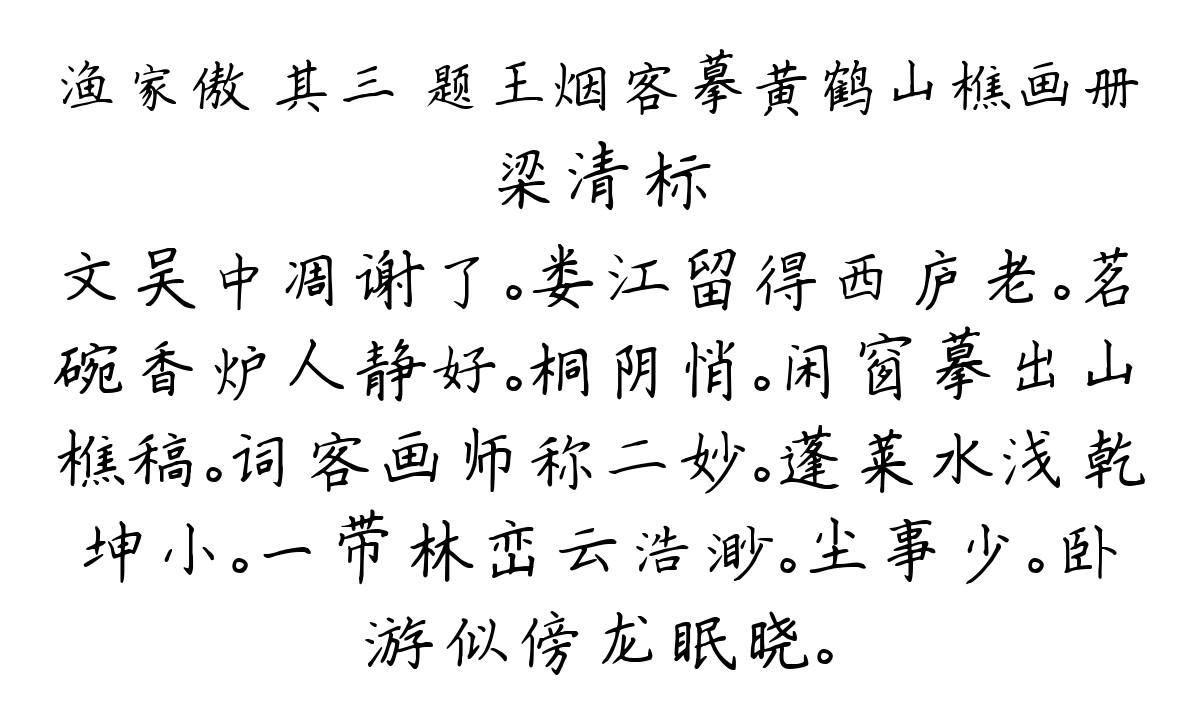 渔家傲 其三 题王烟客摹黄鹤山樵画册
梁清标
文吴中凋谢了。娄江留得西庐老。茗
碗香炉人静好。桐阴悄。闲窗摹出山
樵稿。词客画师称二妙。蓬莱水浅乾
坤小。一带林峦云浩渺。尘事少。卧
游似傍龙眠晓。